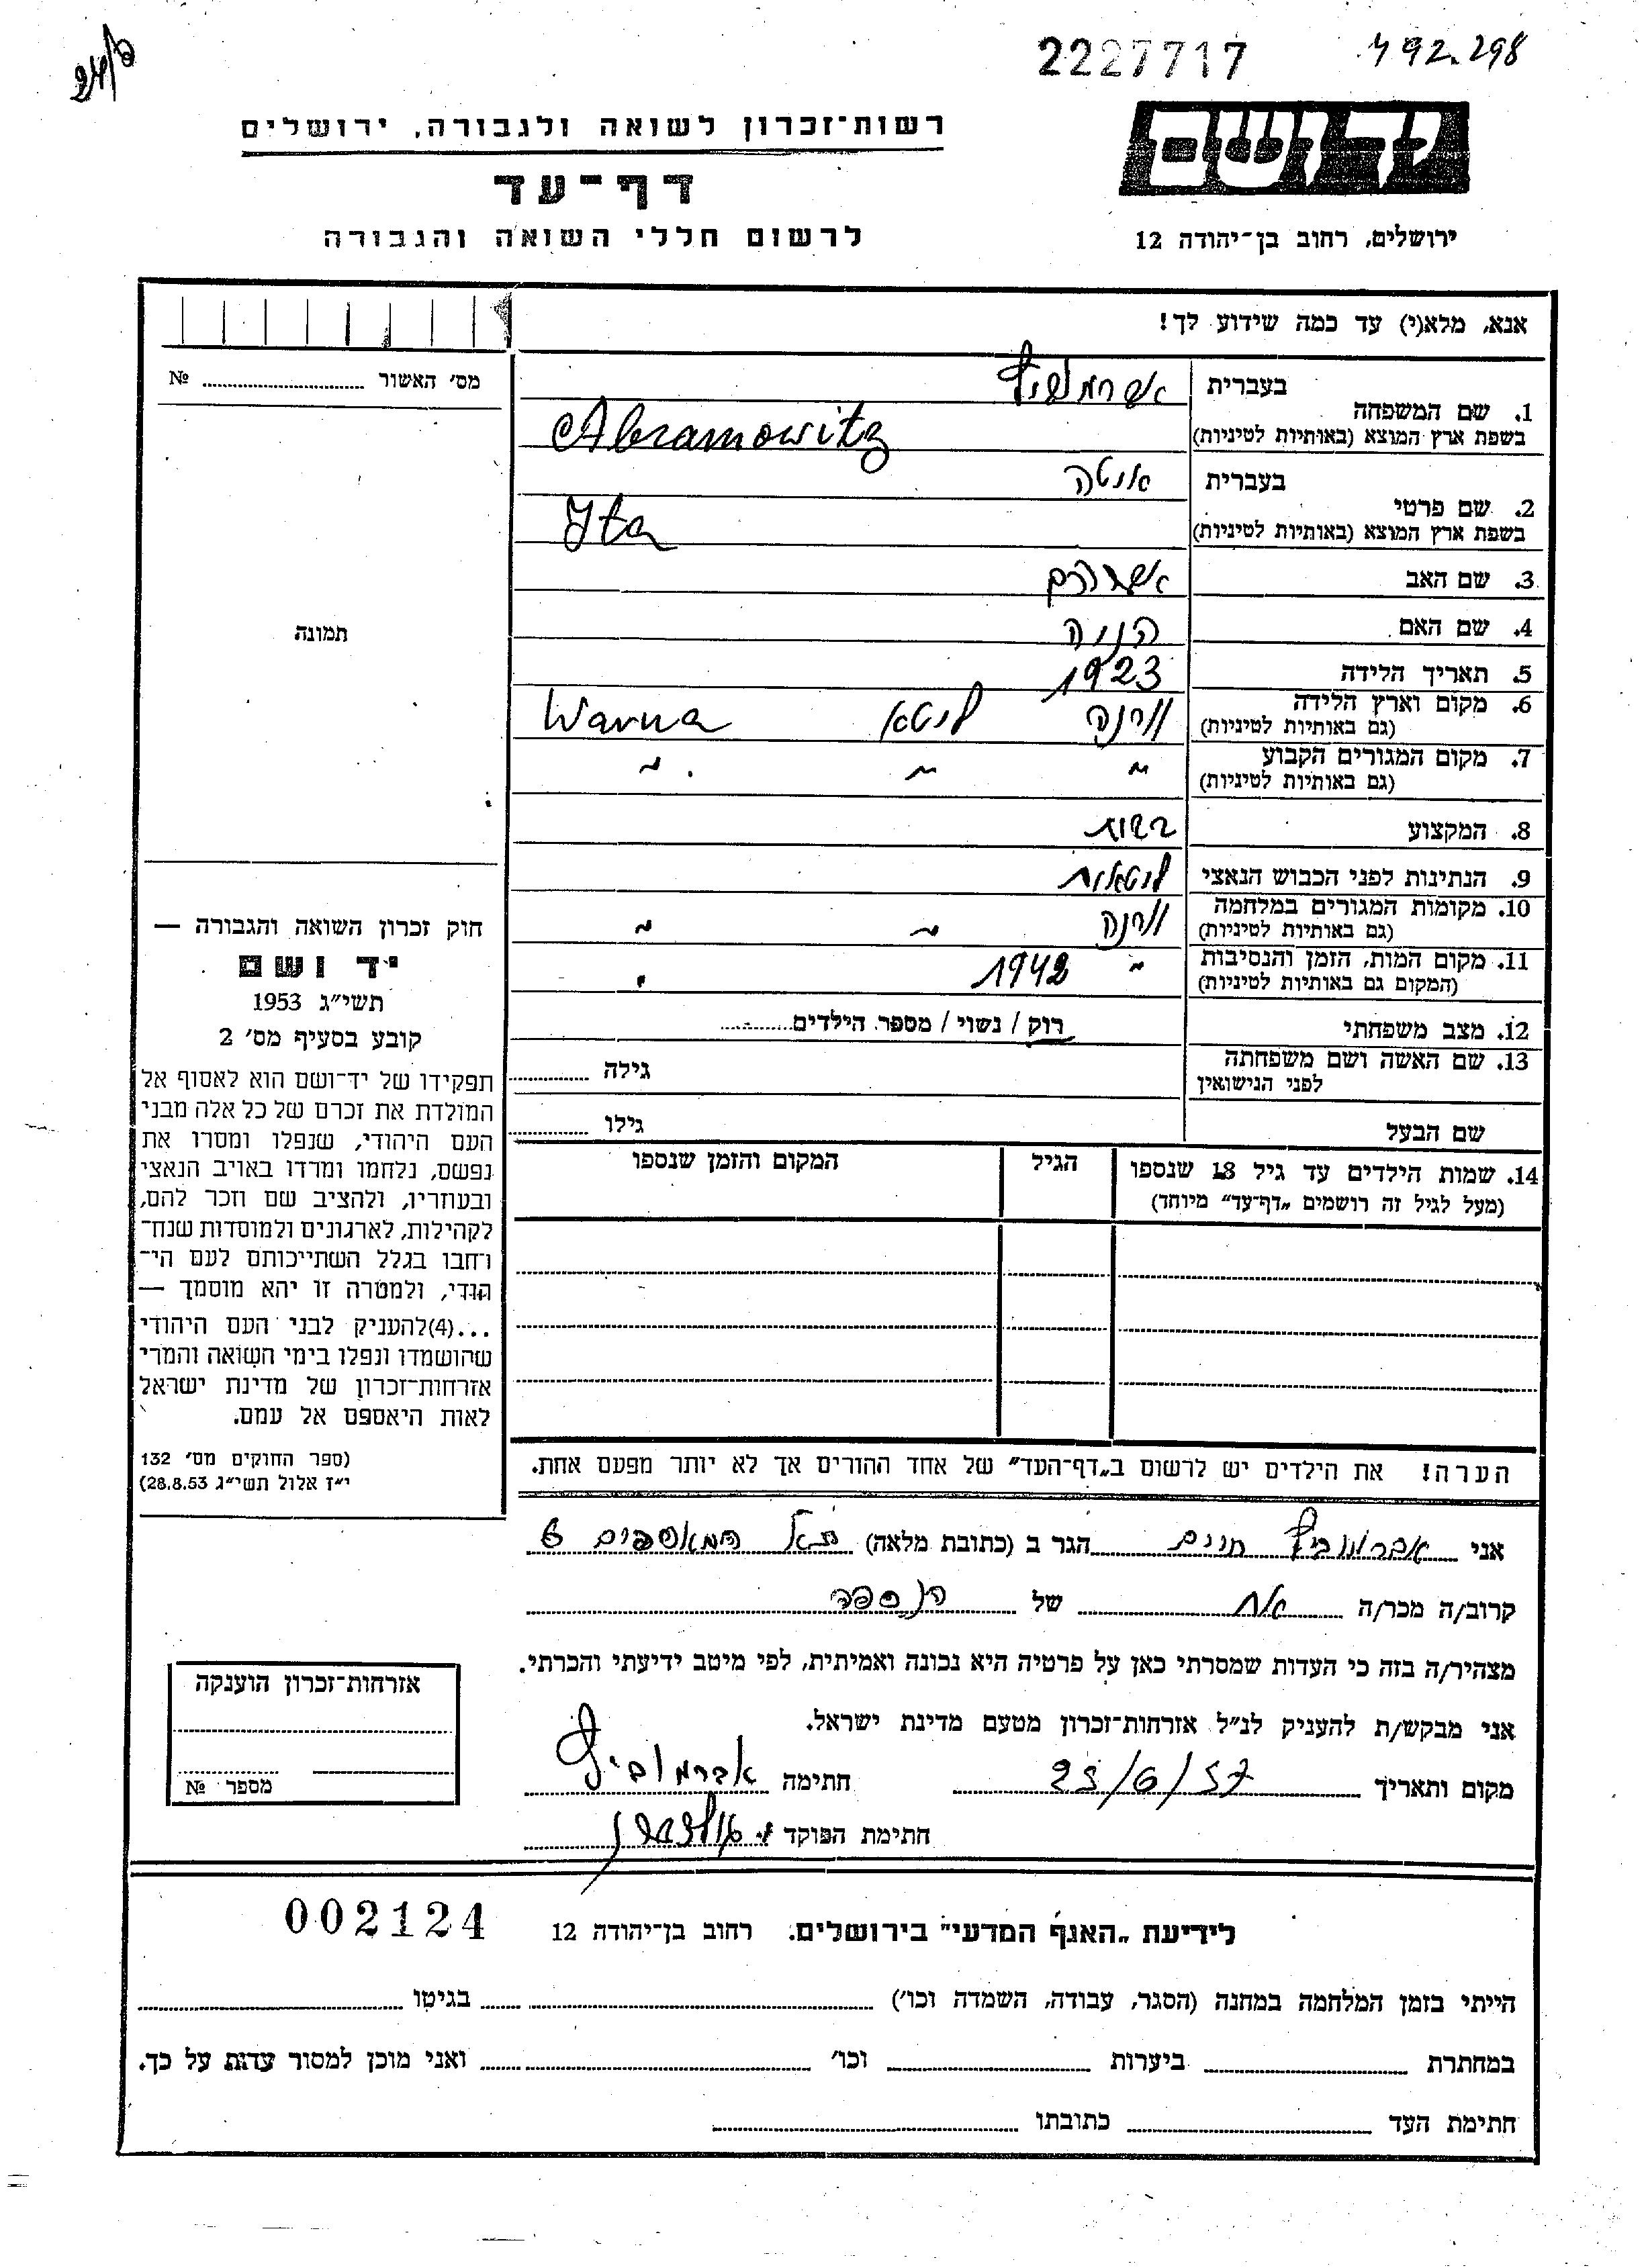 2227717
492.298
רשות־זכרון לשואה ולגבורה, ירושלים
יד ושם
דף־עד
לרשום חללי השואה והגבורה
ירושלים, רחוב בן־יהודה 12
אנא, מלא(י) עד כמה שידוע לך!
מס׳ האשור № 
1. שם המשפחה
בעברית אברמוביץ
בשפת ארץ המוצא (באותיות לטיניות) Abramowitz
2. שם פרטי
בעברית איטה
בשפת ארץ המוצא (באותיות לטיניות) Yta
3. שם האב אברהם
4. שם האם
5. תאריך הלידה 1923
6. מקום וארץ הלידה וורנה ליטא Warna
(גם באותיות לטיניות)
7. מקום המגורים הקבוע " " "
(גם באותיות לטיניות)
8. המקצוע
9. הנתינות לפני הכבוש הנאצי ליטאית
10. מקומות המגורים במלחמה וורנה " "
(גם באותיות לטיניות)
11. מקום המות, הזמן והנסיבות " 1942
(המקום גם באותיות לטיניות)
12. מצב משפחתי רוק / נשוי / מספר הילדים
13. שם האשה ושם משפחתה גילה
לפני הנישואין
שם הבעל גילו
14. שמות הילדים עד גיל 18 שנספו הגיל המקום והזמן שנספו
(מעל לגיל זה רושמים „דף־עד" מיוחד)
הערה! את הילדים יש לרשום ב„דף־העד" של אחד ההורים אך לא יותר מפעם אחת.
תמונה
חוק זכרון השואה והגבורה —
יד ושם
תשי״ג 1953
קובע בסעיף מס׳ 2
תפקידו של יד־ושם הוא לאסוף אל
המולדת את זכרם של כל אלה מבני
העם היהודי, שנפלו ומסרו את
נפשם, נלחמו ומרדו באויב הנאצי
ובעוזריו, ולהציב שם וזכר להם,
לקהילות, לארגונים ולמוסדות שנח־
רחבו בגלל השתייכותם לעם הי־
הודי, ולמטרה זו יהא מוסמך —
...(4)להעניק לבני העם היהודי
שהושמדו ונפלו בימי השואה והמרי
אזרחות־זכרון של מדינת ישראל
לאות היאספם אל עמם.
(ספר החוקים מס׳ 132
י״ז אלול תשי״ג 28.8.53)
אני אברמוביץ חיים הגר ב (כתובת מלאה) 6
קרוב/ה מכר/ה אח של הנספה
מצהיר/ה בזה כי העדות שמסרתי כאן על פרטיה היא נכונה ואמיתית, לפי מיטב ידיעתי והכרתי.
אני מבקש/ת להעניק לנ״ל אזרחות־זכרון מטעם מדינת ישראל.
מקום ותאריך 25/6/57 חתימה אברמוביץ
חתימת הפוקד
אזרחות־זכרון הוענקה
מספר №
002124
לידיעת „האגף המדעי" בירושלים. רחוב בן־יהודה 12
הייתי בזמן המלחמה במחנה (הסגר, עבודה, השמדה וכו׳) בגיטו
במחתרת ביערות וכו׳ ואני מוכן למסור עדות על כך.
חתימת העד כתובתו